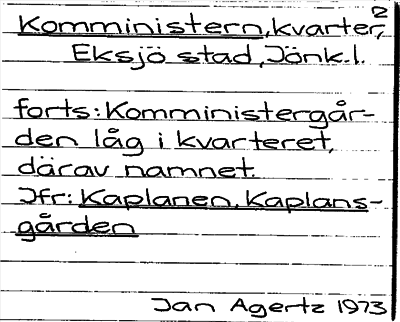 2
Komministern, kvarter,
Eksjö stad, Jönk.l.
forts: Komministergår-
den låg i kvarteret,
därav namnet.
Jfr: Kaplanen, Kaplans-
gården
Jan Agertz 1973